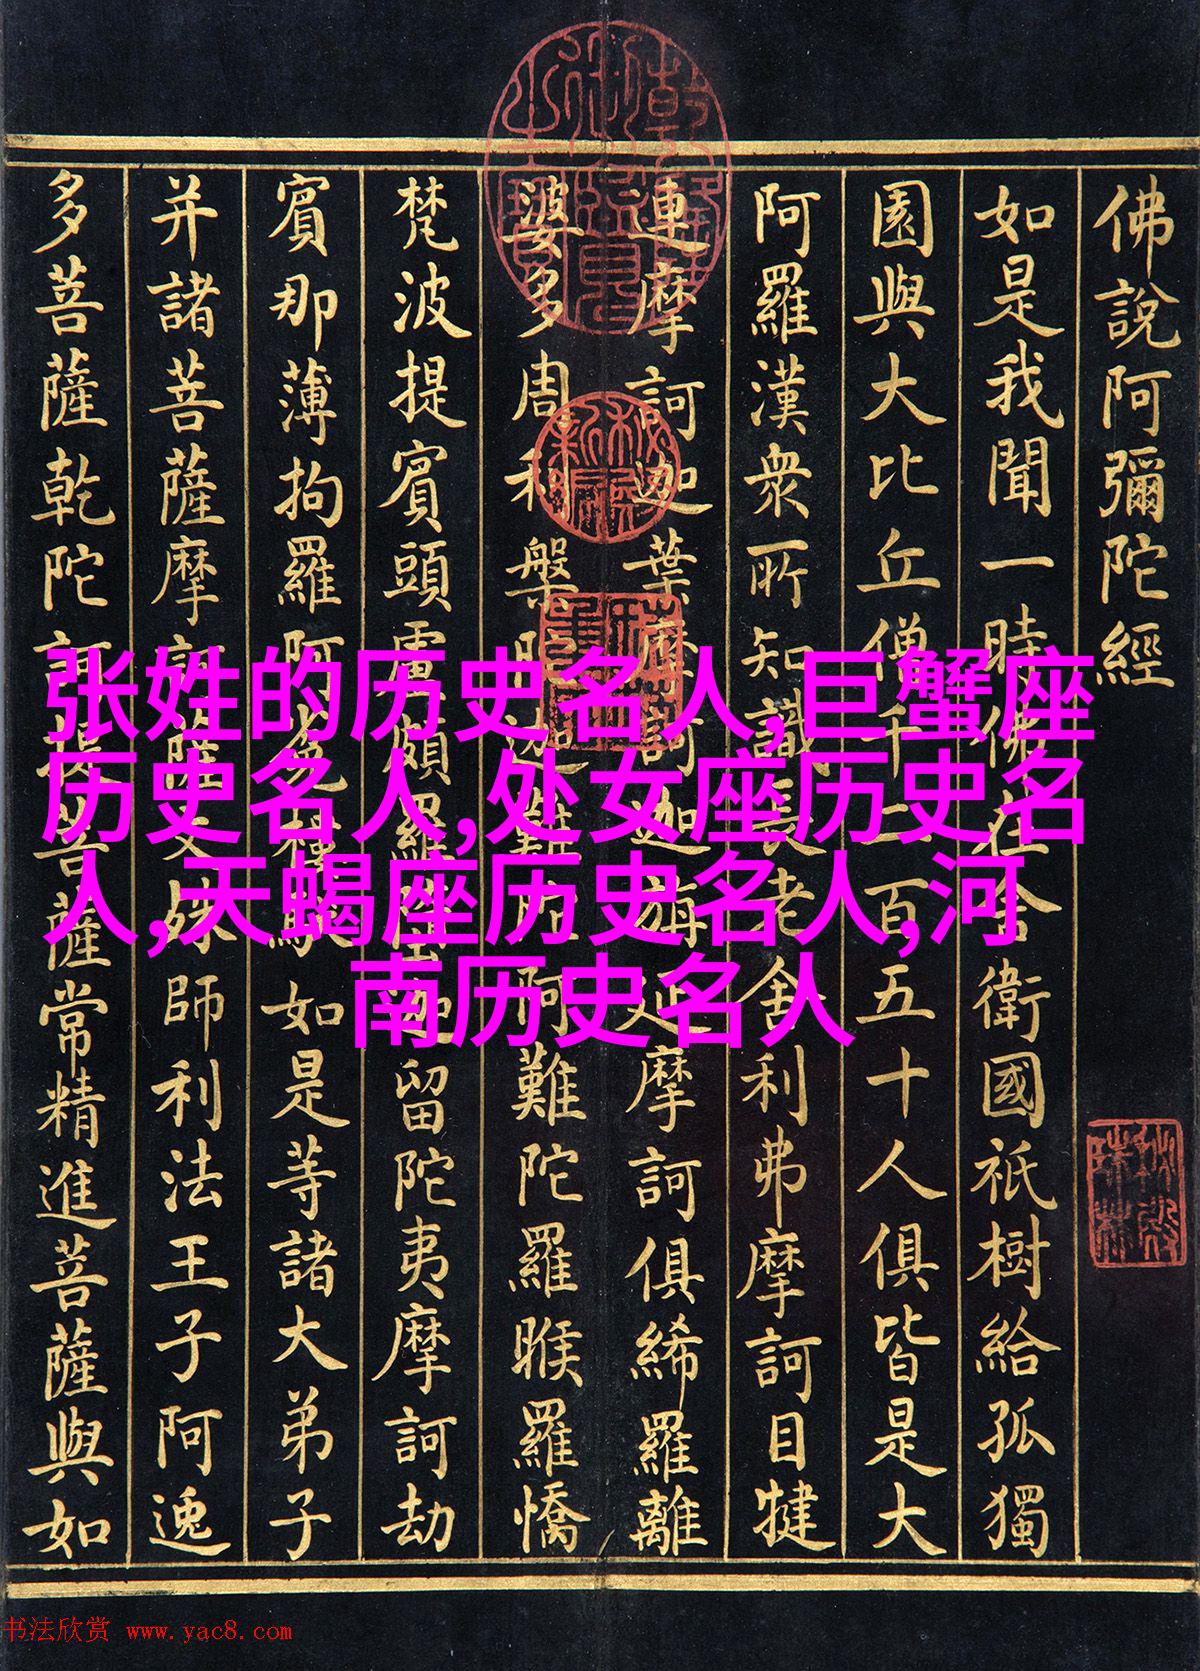 佛說阿彌陀經
如是我聞一時佛在舍衛國祇樹給孤獨
園與大比丘僧千二百五十人俱皆是大
阿羅漢衆所知識長老舍利弗摩訶目犍
連摩訶迦葉摩訶迦旃延摩訶俱絺羅離
婆多周利槃陀迦難陀阿難陀羅睺羅憍
梵波提賓頭盧頗羅墮迦留陀夷摩訶劫
賓那薄拘羅阿㝹樓馱如是等諸大弟子
并諸菩薩摩訶薩文殊師利法王子阿逸
多菩薩乾陀訶提菩薩常精進菩薩與如
张姓的历史名人,巨蟹座
历史名人,处女座历史名
人,天蝎座历史名人,河
南历史名人
书法欣赏 www.yac8.com